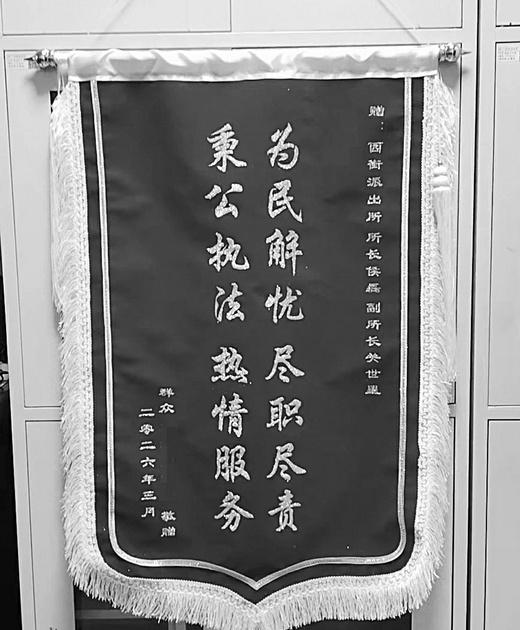 赠：西街派出所 所长侯磊 副所长关世星
为民解忧 尽职尽责
秉公执法 热情服务
群众 敬赠
二零二六年三月